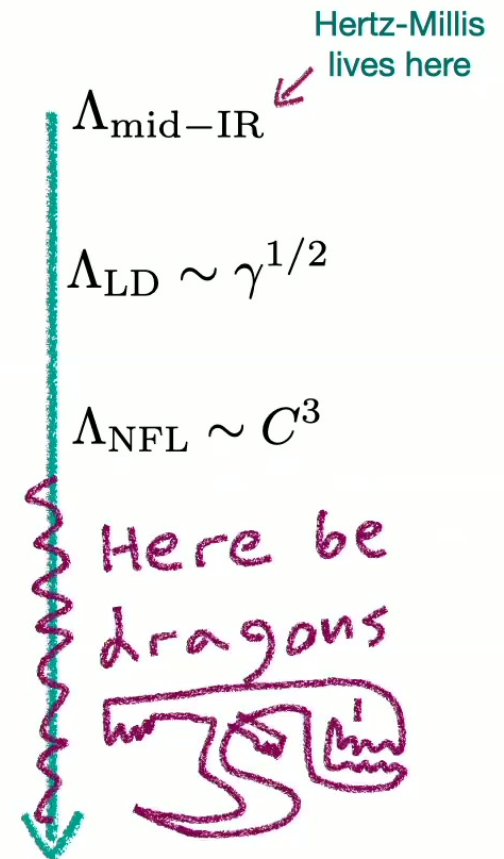 Hertz-Millis
lives here
Λ_{mid−IR}
Λ_{LD} ∼ γ^{1/2}
Λ_{NFL} ∼ C^3
Here be
dragons